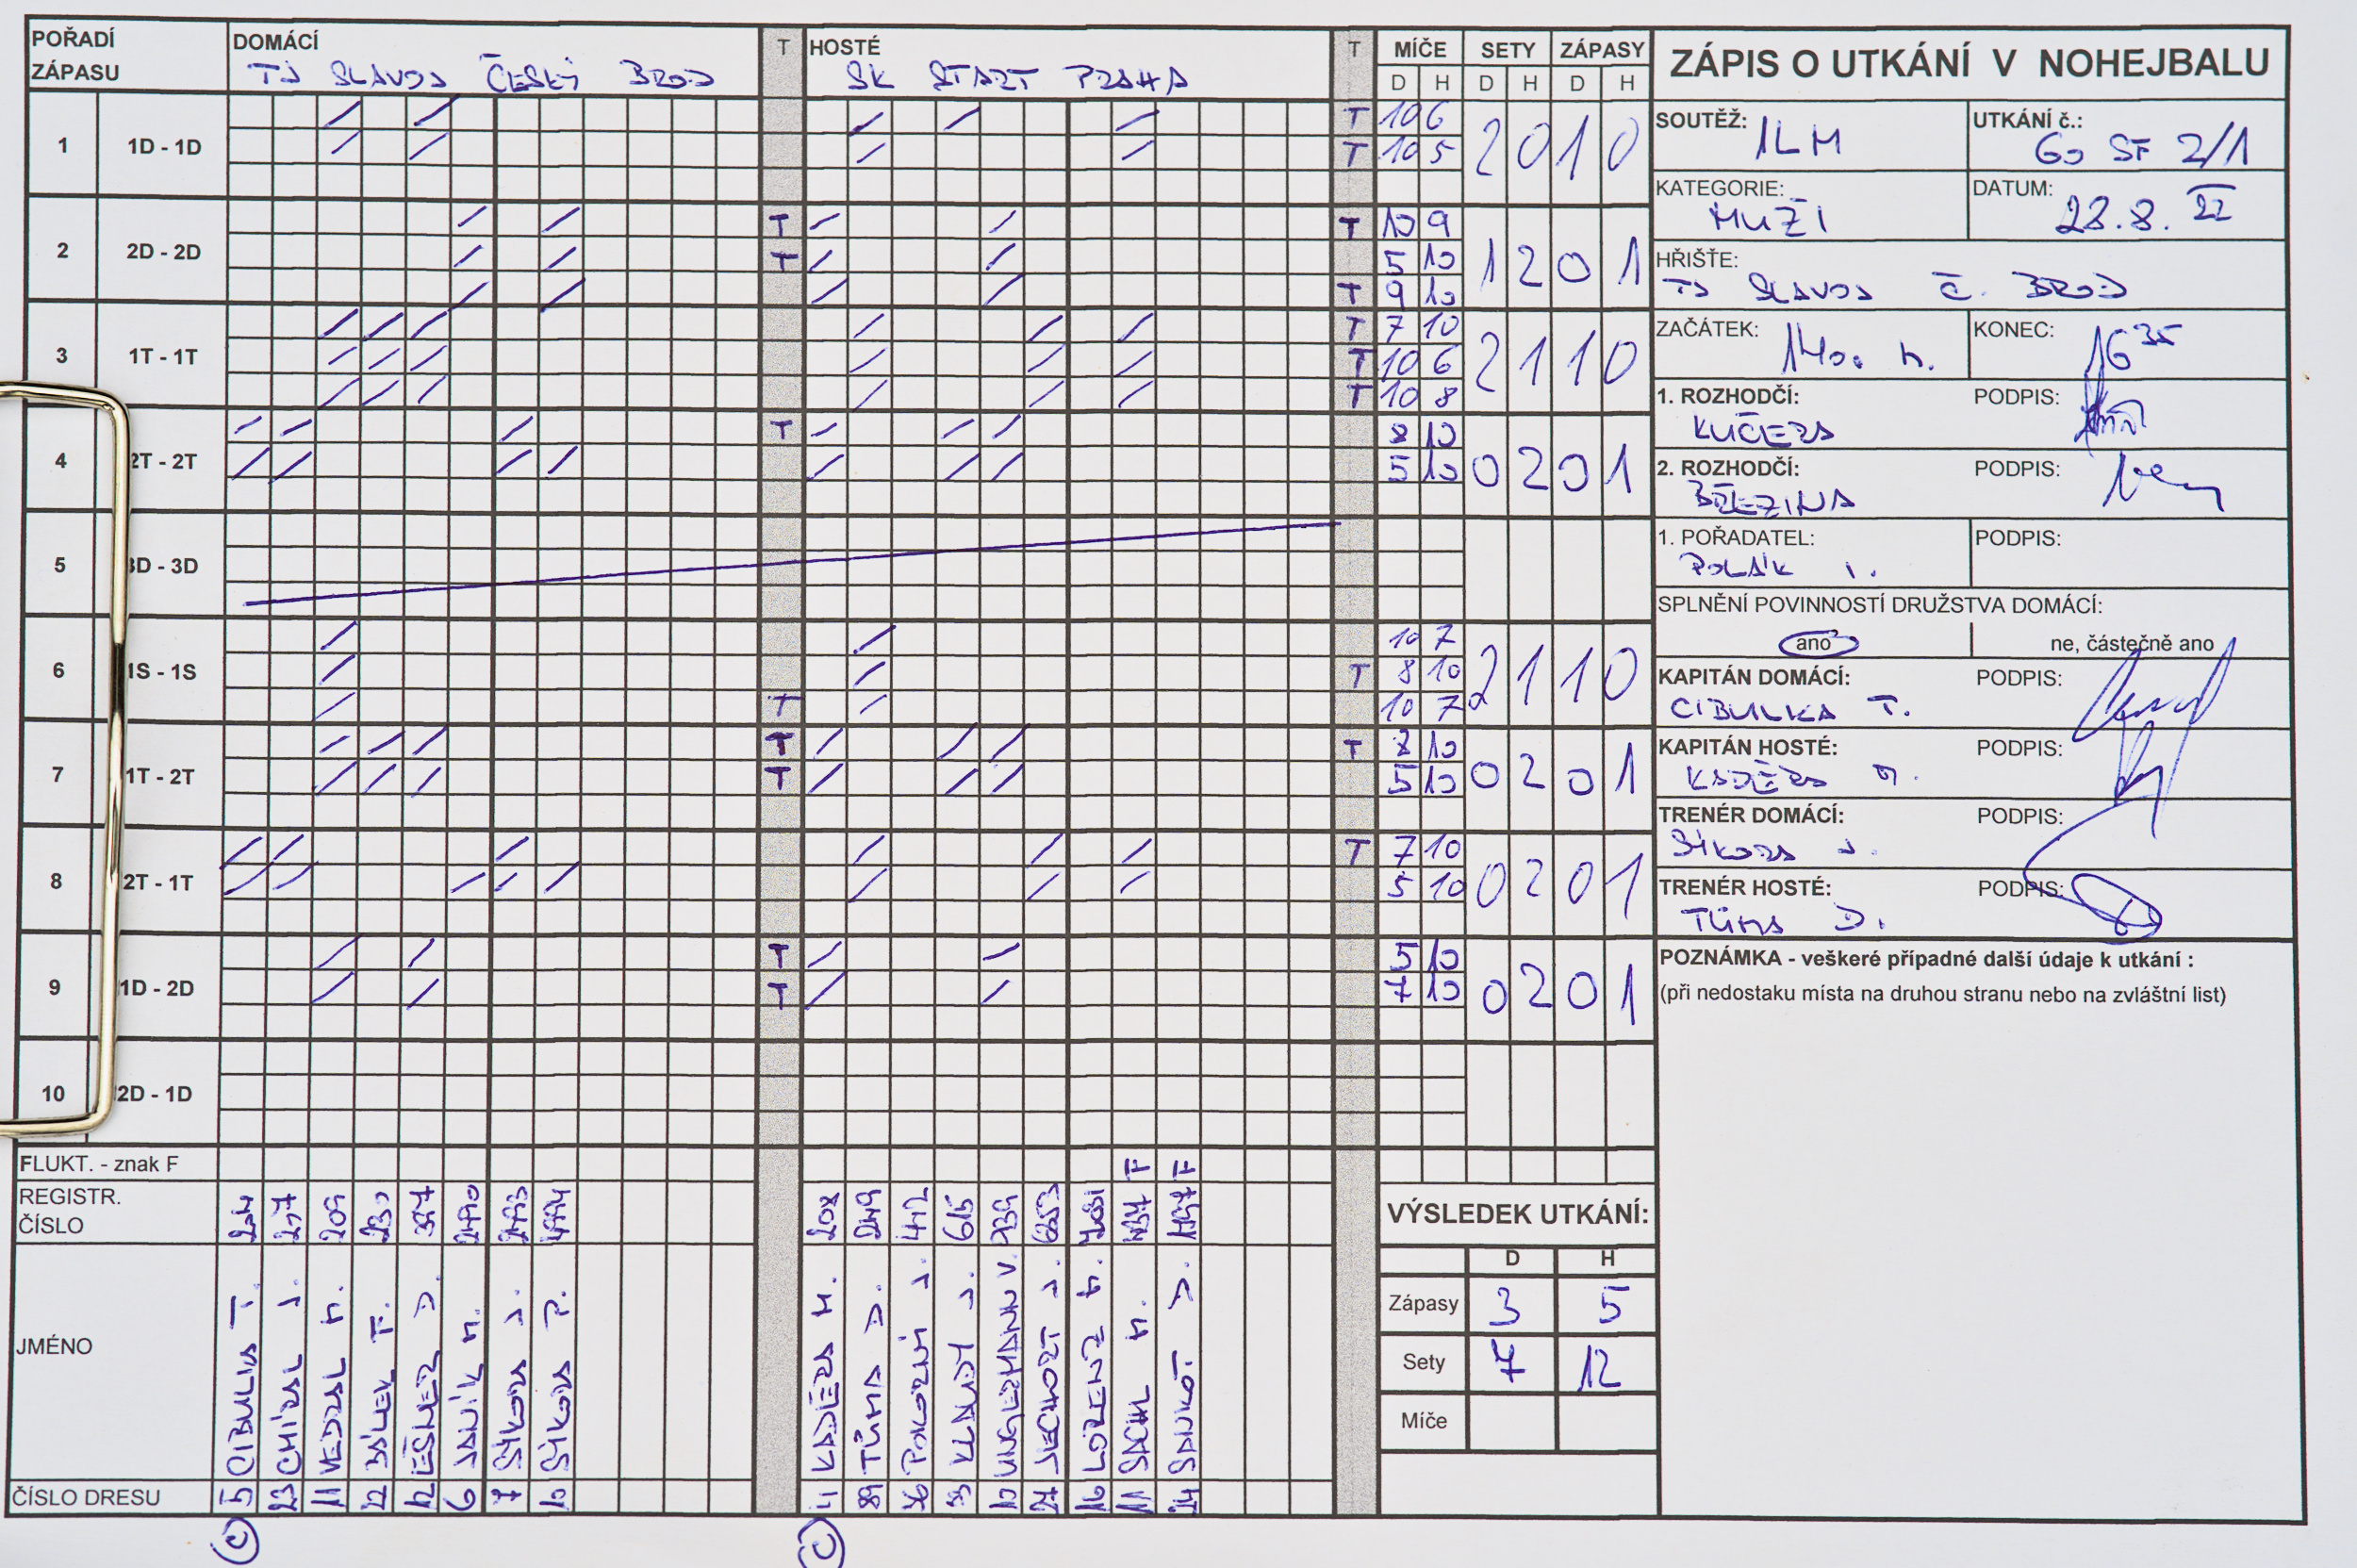 POŘADÍ ZÁPASU DOMÁCÍ T HOSTÉ T MÍČE SETY ZÁPASY
TJ SLAVOJ ČESKÝ BROD SK START PRAHA D H D H D H
1 1D - 1D T 10 6 2 0 1 0
T 10 5
2 2D - 2D T T 10 9 1 2 0 1
T 5 10
T 9 10
3 1T - 1T T 7 10 2 1 1 0
T 10 6
T 10 8
4 2T - 2T T 8 10 0 2 0 1
5 10
5 3D - 3D
6 1S - 1S 10 7 2 1 1 0
T 8 10
T 10 7
7 1T - 2T T T 8 10 0 2 0 1
T 5 10
8 2T - 1T T 7 10 0 2 0 1
5 10
9 1D - 2D T 5 10 0 2 0 1
T 7 10
10 2D - 1D
FLUKT. - znak F F F
REGISTR. ČÍSLO 204 277 209 230 397 2490 2493 4994 208 249 442 615 939 6253 4081
JMÉNO CIBULKA T. CHVÁTAL J. VEDRAL M. BÍLEK F. LEŠNER D. JANÍK M. SÝKORA J. SÝKORA P. KADĚRA M. TŮMA D. POKORNÝ J. KLAUDY J. JECHORT J. LORENZ M. SACHL M.
ČÍSLO DRESU 5 23 11 22 12 6 7
C C
ZÁPIS O UTKÁNÍ V NOHEJBALU
SOUTĚŽ: 1LM UTKÁNÍ č.: SF 2/1
KATEGORIE: MUŽI DATUM: 28.8. 22
HŘIŠTĚ: TJ SLAVOJ Č. BROD
ZAČÁTEK: 14 00 h. KONEC: 16 35
1. ROZHODČÍ: KUČERA PODPIS:
2. ROZHODČÍ: BŘEZINA PODPIS:
1. POŘADATEL: POLÁK PODPIS:
SPLNĚNÍ POVINNOSTÍ DRUŽSTVA DOMÁCÍ:
ano ne, částečně ano
KAPITÁN DOMÁCÍ: CIBULKA T. PODPIS:
KAPITÁN HOSTÉ: KADĚRA M. PODPIS:
TRENÉR DOMÁCÍ: SÝKORA J. PODPIS:
TRENÉR HOSTÉ: TŮMA D. PODPIS:
POZNÁMKA - veškeré případné další údaje k utkání :
(při nedostaku místa na druhou stranu nebo na zvláštní list)
VÝSLEDEK UTKÁNÍ:
D H
Zápasy 3 5
Sety 7 12
Míče